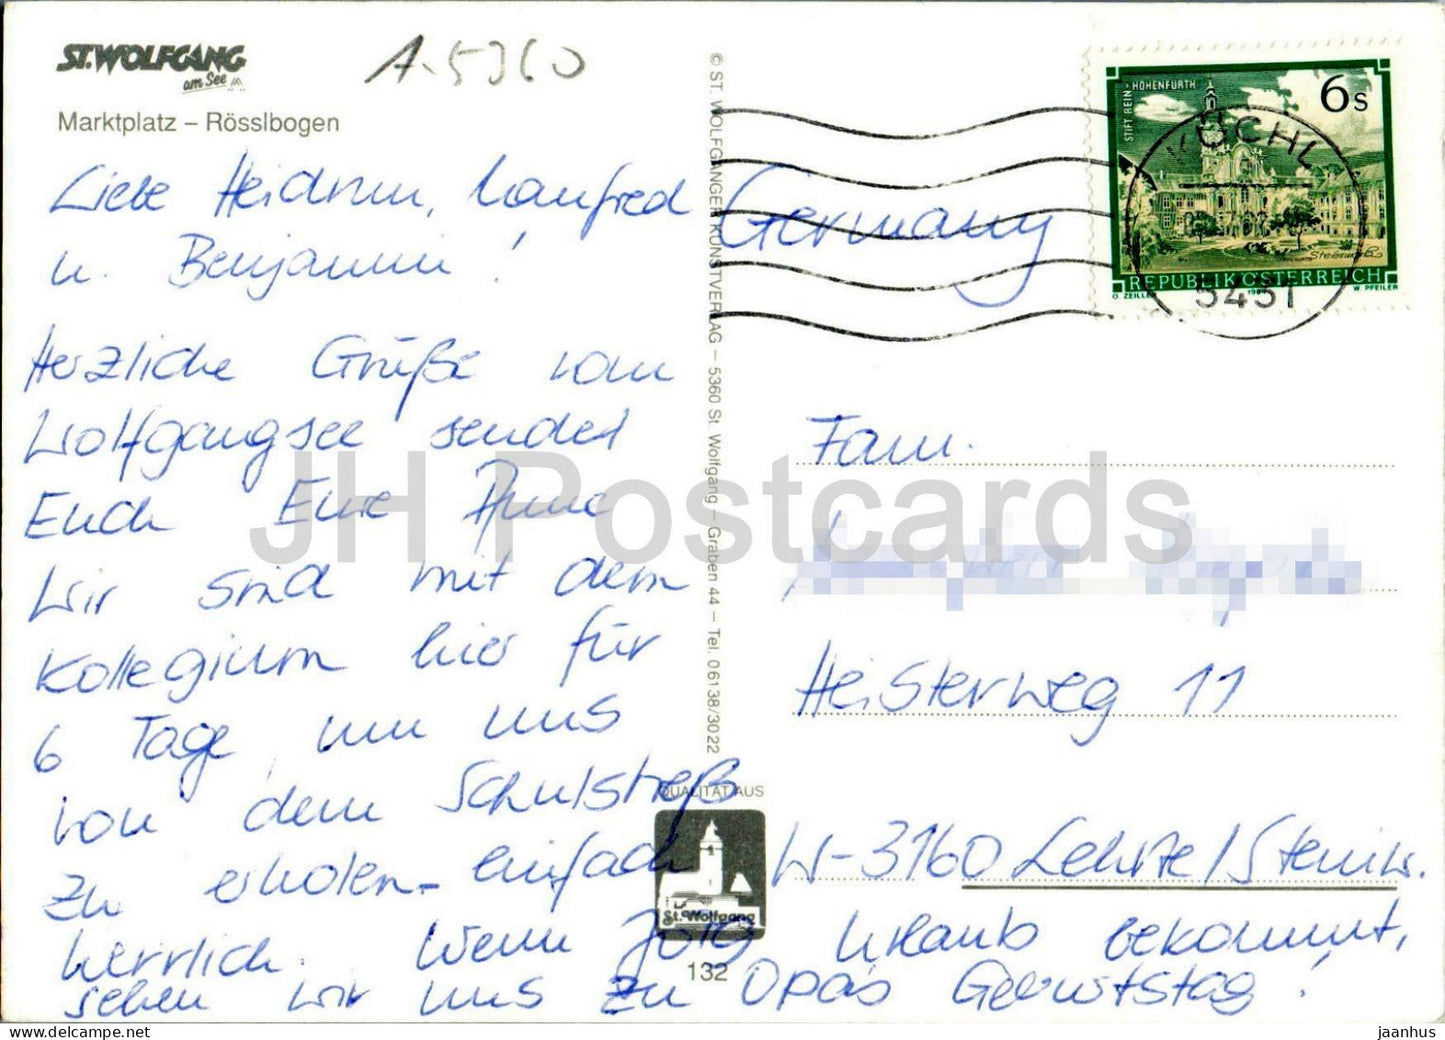 ST. WOLFGANG
am See
A-5360
Marktplatz – Rösslbogen
Liebe Heidrun, Manfred
u. Benjamin!
Herzliche Grüße vom
Wolfgangsee sendet
Euch Eure Anne
Wir sind mit dem
Kollegium hier für
6 Tage, um uns
von dem Schulstreß
zu erholen - einfach
herrlich. Wenn Jörg Urlaub bekommt,
sehen wir uns zu Opas Geburtstag!
© ST. WOLFGANGER KUNSTVERLAG – 5360 St. Wolfgang – Graben 44 – Tel. 06138/3022
QUALITÄT AUS
St. Wolfgang
132
Germany
STIFT REIN - HOHENFURTH
6s
REPUBLIK ÖSTERREICH
O. ZEILLER
W. PFEILER
5431
Fam.
Heisterweg 11
W-3160 Lehrte/Steinw.
JH Postcards
jaanhus — https://www.ebay.com/str/jaanhus